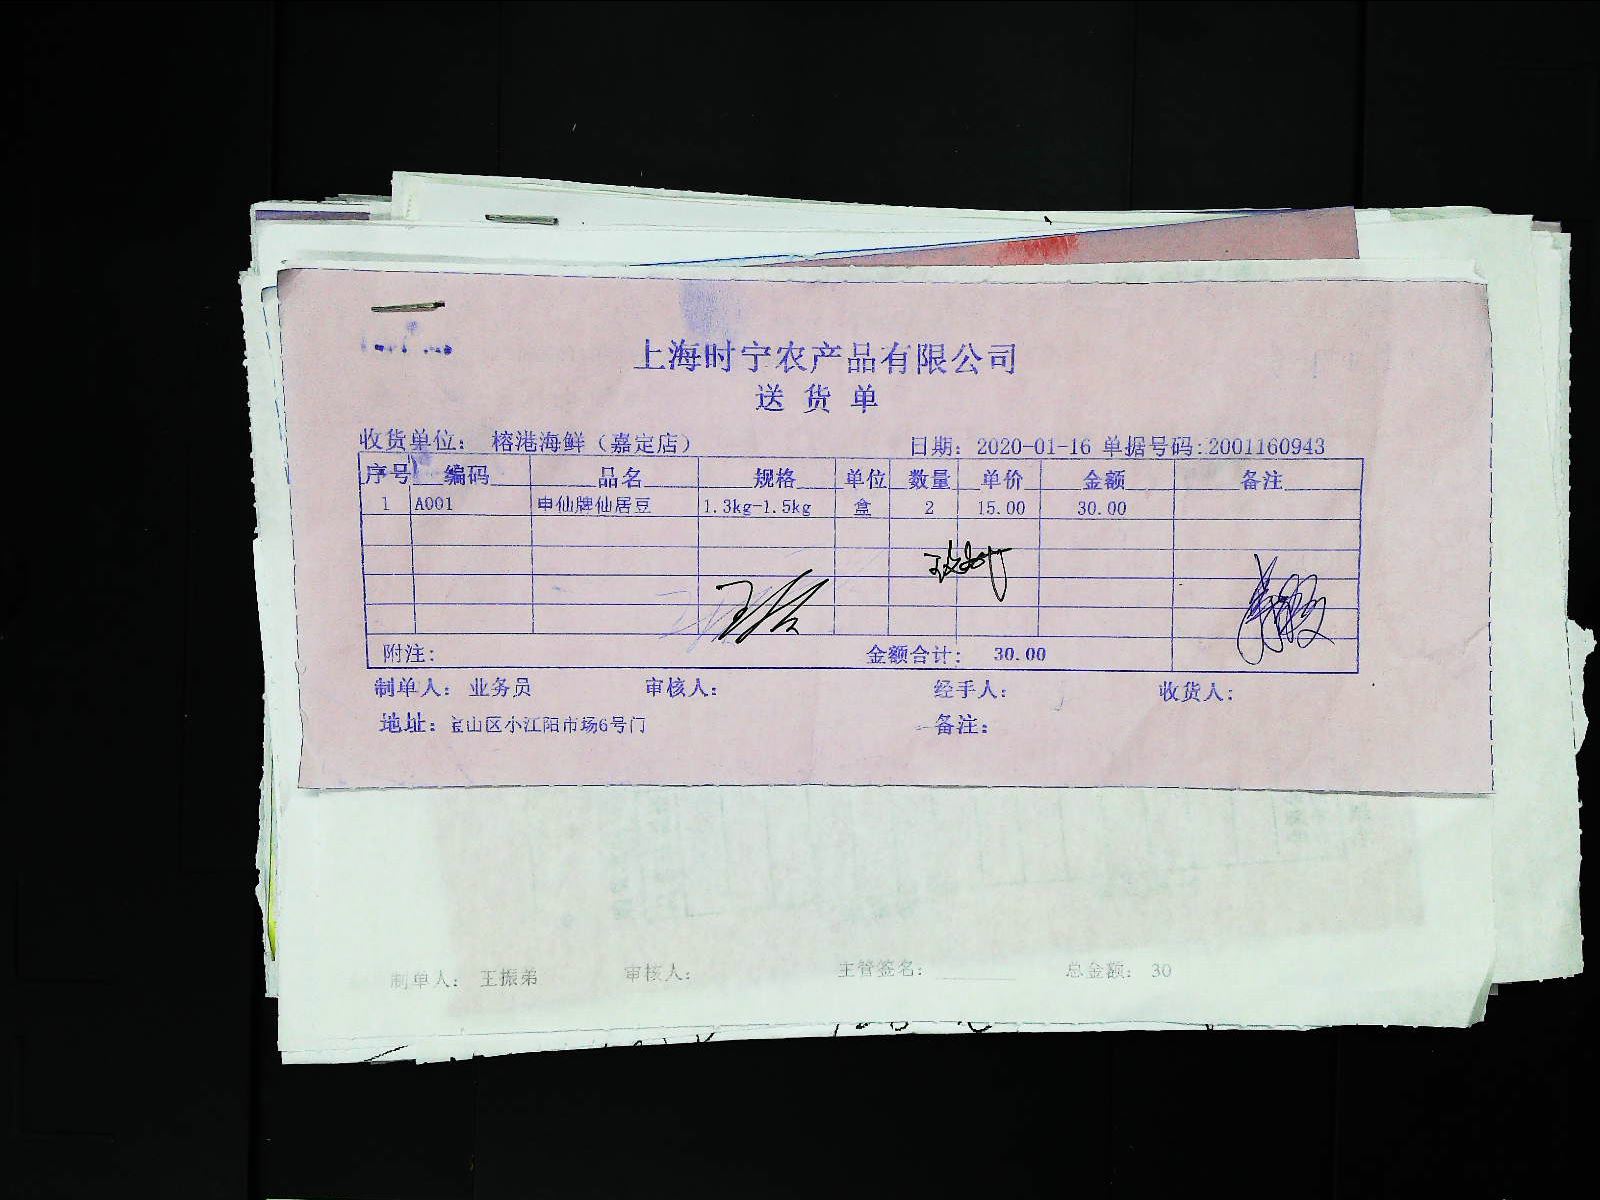 上海时宁农产品有限公司
送货单
收货单位： 榕港海鲜（嘉定店） 日期：2020-01-16 单据号码:2001160943
序号 编码 品名 规格 单位 数量 单价 金额 备注
1 A001 申仙牌仙居豆 1.3kg-1.5kg 盒 2 15.00 30.00
附注: 金额合计: 30.00
制单人: 业务员 审核人: 经手人: 收货人:
地址: 宝山区小江阳市场6号门 备注:
制单人: 王振弟 审核人: 主管签名: 总金额: 30